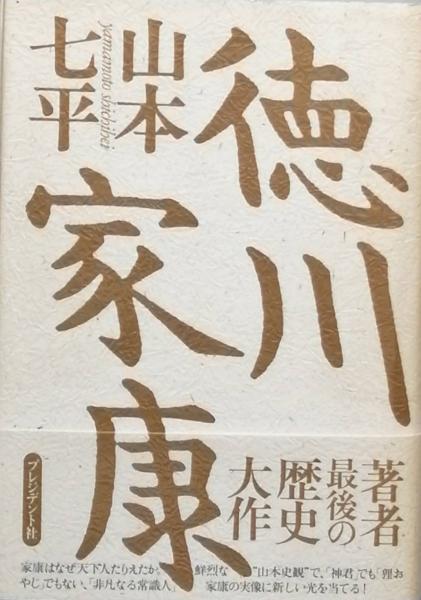 徳川
家康
山本
七平
yamamoto shichihei
著者
最後の
歴史
大作
プレジデント社
家康はなぜ「天下人たりえたか。 鮮烈な“山本史観”で、「神君」でも「狸お
やじ」でもない、「非凡なる常識人」 家康の実像に新しい光を当てる!